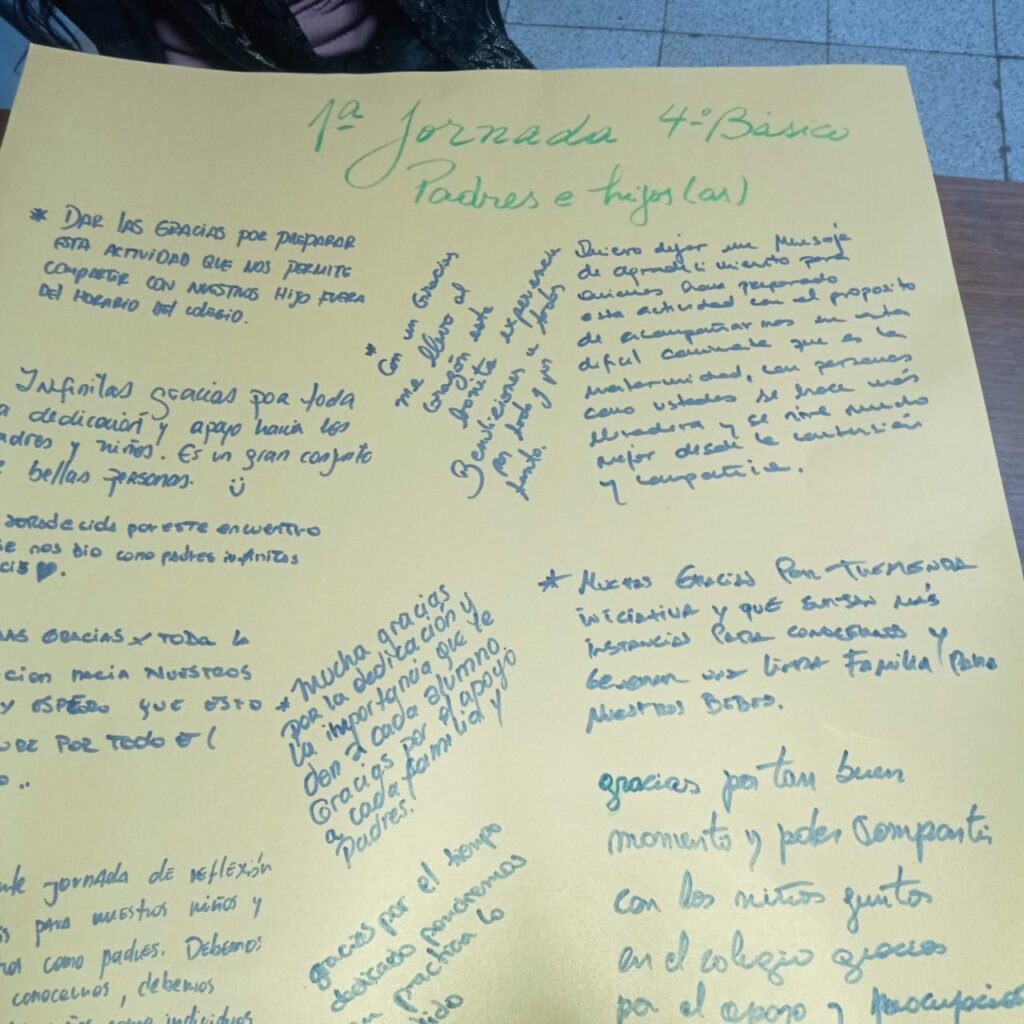 1ª Jornada 4º Básico
Padres e hijos(as)
* DAR LAS GRACIAS POR PREPARAR
ESTA ACTIVIDAD QUE NOS PERMITE
COMPARTIR CON NUESTROS HIJO FUERA
DEL HORARIO DEL COLEGIO.
Infinitas gracias por toda
a dedicación y apoyo hacia los
adres y niños. Es un gran conjunto
bellas personas.
por este encuentro
e nos dio como padres infinitas
GRACIAS x TODA la
cion hacia NUESTROS
y ESPERO QUE ESTO
POR TODO E(
JORNADA DE REFLEXIÓN
PARA nuestros niños y
os como padres. Debemos
conocernos, debemos
como individuos
* Con un Gracias
me llevo al
Corazón este
bonita experiencia
Bendiciones a todos
por todo y por
tanto.
* Mucha gracias
por la dedicación y
la importancia que le
don a cada alumno
Gracias por el apoyo
a cada familia y
Padres.
gracias por el tiempo
dedicado pondremos
en practica lo
dido
Quiero dejar un Mensaje
de agradecimiento para
quienes han preparado
esta actividad con el proposito
de acompañarnos en esta
dificil caminata que es la
maternidad, con personas
como ustedes se hace más
y se vive mucho
mejor desde la contención
y compartir.
* Muchas Gracias Por TREMENDA
INICIATIVA y QUE MÁS
INSTANCIAS PARA CONOCERNOS y
GENERAR UNA LINDA FAMILIA PARA
NUESTROS BEBES.
gracias por tan buen
momento y poder Compartir
con los niños juntos
en el colegio gracias
por el apoyo y preocupación